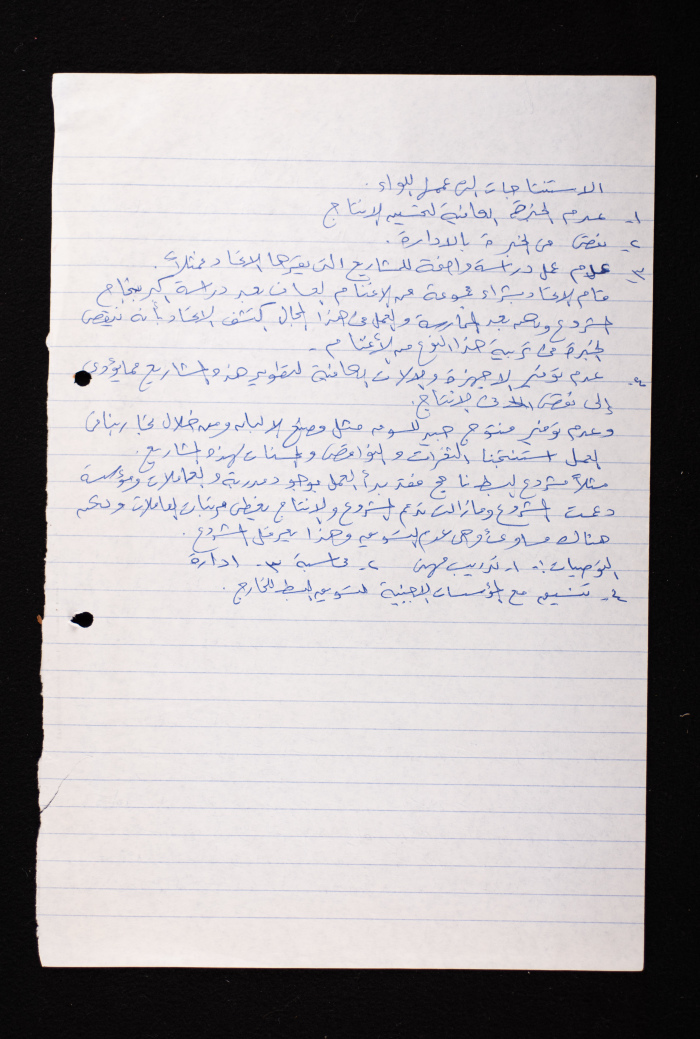 الاستنتاجات الى عمل اللواء.
١- عدم الخبرة الكافية لتحسين الانتاج
٢- نقص من الخبرة بالادارة.
٣- عدم عمل دراسة واضحة للمشاريع التي يقيمها الاتحاد فمثلاً
قام الاتحاد بشراء مجموعة من الأغنام العساف بعد دراسة أكبر بنجاح
المشروع ولكن بعد الممارسة والعمل في هذا المجال اكتشف الاتحاد بأنه ينقص
الخبرة في تربية هذا النوع من الأغنام.
٤- عدم توفير الاجهزة والآلات الكافية لتطوير هذه المشاريع مما يؤدي
إلى نقص في الانتاج.
وعدم توفير منتوج جيد للسوق مثل مصنع الالبان ومن خلال تجاربنا في
العمل استنتجنا الثغرات والنواقص والحسنات لهذه المشاريع.
مثلاً مشروع البسط ناجح فقد بدأ العمل بوجود مدربة والعاملات ومؤسسة
دعمت المشروع وما زالت تدعم المشروع والانتاج يغطي مرتبات العاملات ولكن
هناك وهي عدم التسويق وهذا يعرقل المشروع.
التوصيات:- ١- تدريب مهني ٢- محاسبة ٣- ادارة
٤- تنسيق مع المؤسسات الاجنبية لتسويق البسط للخارج.